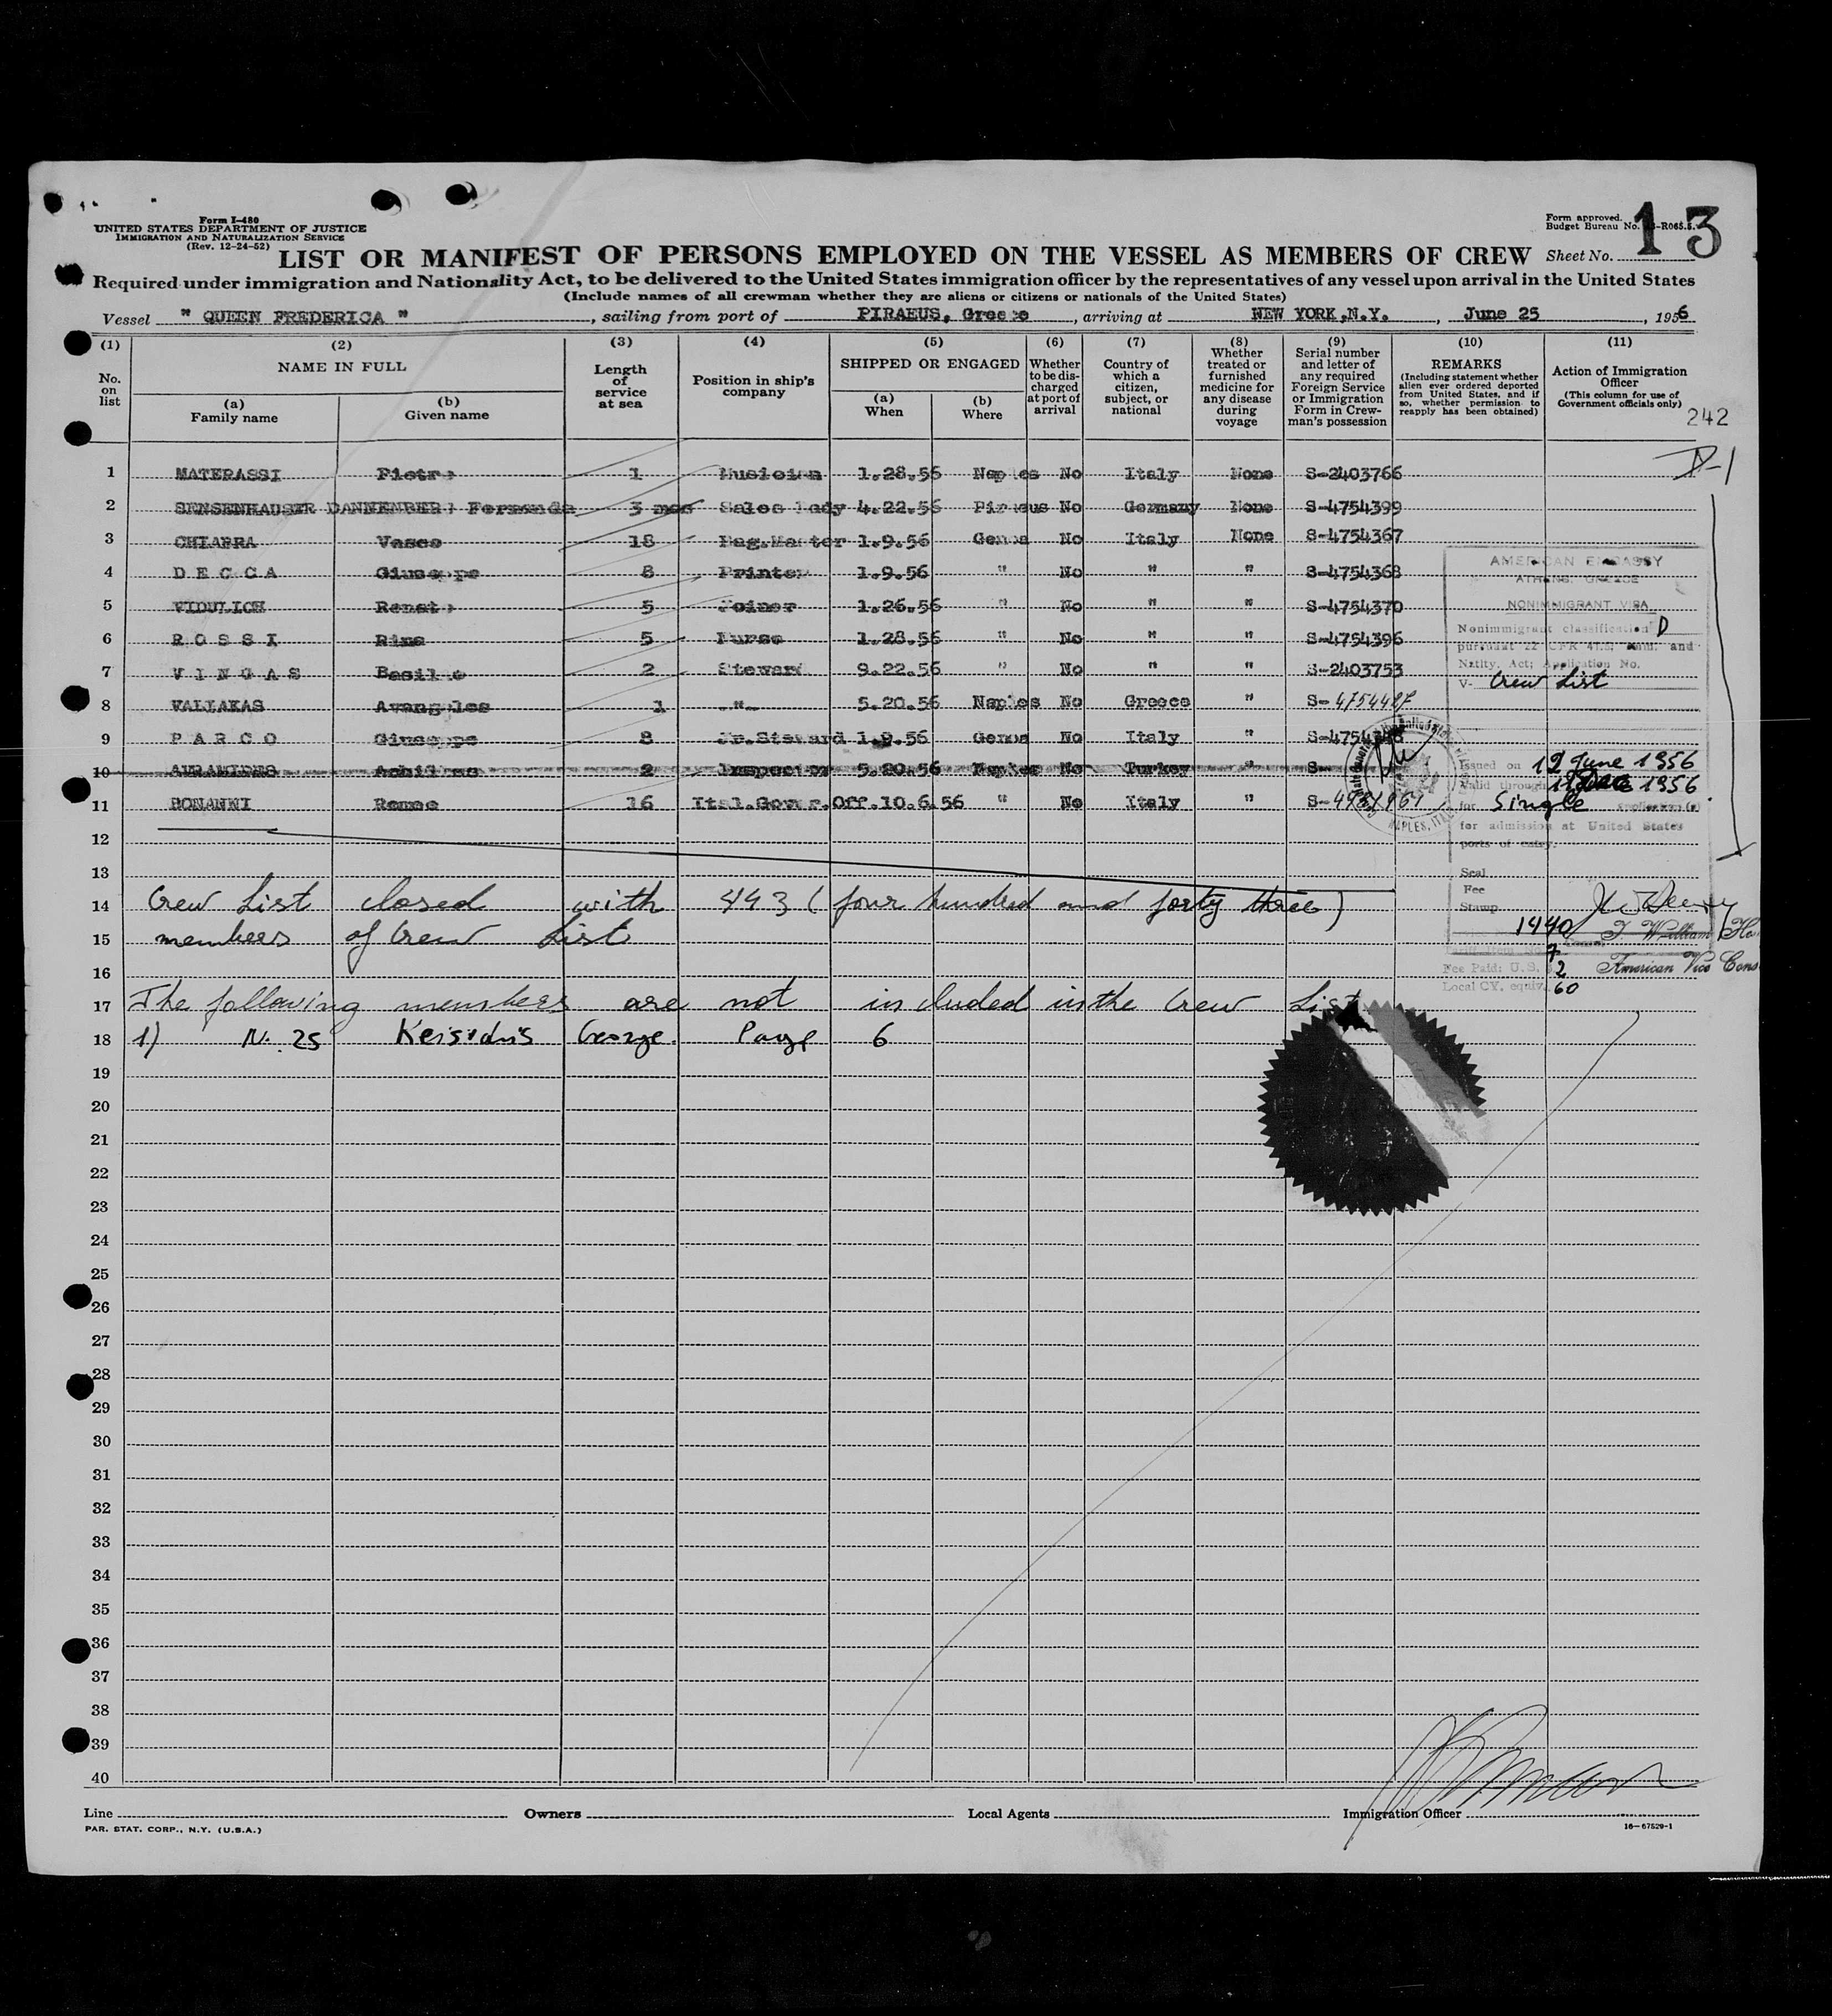 Form I-480
UNITED STATES DEPARTMENT OF JUSTICE
IMMIGRATION AND NATURALIZATION SERVICE
(Rev. 12-24-52)
Form approved.
Budget Bureau No. -R065.5.
13
LIST OR MANIFEST OF PERSONS EMPLOYED ON THE VESSEL AS MEMBERS OF CREW Sheet No.
Required under immigration and Nationality Act, to be delivered to the United States immigration officer by the representatives of any vessel upon arrival in the United States
(Include names of all crewman whether they are aliens or citizens or nationals of the United States)
Vessel " QUEEN FREDERICA ", sailing from port of PIRAEUS, Greece, arriving at NEW YORK,N.Y., June 25, 1956
(1) No. on list
(2) NAME IN FULL
(a) Family name
(b) Given name
(3) Length of service at sea
(4) Position in ship's company
(5) SHIPPED OR ENGAGED
(a) When
(b) Where
(6) Whether to be discharged at port of arrival
(7) Country of which a citizen, subject, or national
(8) Whether treated or furnished medicine for any disease during voyage
(9) Serial number and letter of any required Foreign Service or Immigration Form in Crewman's possession
(10) REMARKS (Including statement whether alien ever ordered deported from United States, and if so, whether permission to reapply has been obtained)
(11) Action of Immigration Officer (This column for use of Government officials only)
242
D-1
1 MATERASSI Pietro 1 Musician 1.28.56 Naples No Italy None S-2403766
2 SENSENHAUSER DANNENBERG Fernanda 3 mos Sales Lady 4.22.56 Piraeus No Germany None S-4754399
3 CHIABRA Vasco 18 Bag.Master 1.9.56 Genoa No Italy None S-4754367
4 D E C C A Giuseppe 8 Printer 1.9.56 " No " " S-4754368
5 VIDULICH Renato 5 Joiner 1.26.56 " No " " S-4754370
6 R O S S I Rina 5 Nurse 1.28.56 " No " " S-4754396
7 V I N G A S Basile 2 Steward 9.22.56 " No " " S-2403753
8 VALIAKAS Avangelos 1 -"- 5.20.56 Naples No Greece " S-4754487
9 P A R C O Giuseppe 8 Jr.Steward 1.9.56 Genoa No Italy " S-4754
10 AVRAMIDES Achileas 2 Inspector 5.20.56 Naples No Turkey " S-
11 BONANNI Remo 16 Ital.Gover.Off. 10.6.56 " No Italy " S-
AMERICAN EMBASSY
ATHENS, GREECE
NONIMMIGRANT VISA
Nonimmigrant classification D
pursuant 22 CFR 41.2, Imm. and
Natlty. Act; Application No.
V- Crew List
Issued on 12 June 1956
Valid through 11 Dec 1956
for Single application(s)
for admission at United States
ports of entry.
Seal
Fee
Stamp
1440
7
Fee Paid: U.S. $ 2
Local CY. equiv. 60
American Vice Cons
NAPLES, ITALY
12
13
14 Crew List closed with 443 ( four hundred and forty three )
15 members of Crew List
16
17 The following members are not included in the Crew List
18 1) N. 25 Keisidis George. Page 6
19
20
21
22
23
24
25
26
27
28
29
30
31
32
33
34
35
36
37
38
39
40
Line Owners Local Agents Immigration Officer
PAR. STAT. CORP., N.Y. (U.S.A.)
16-67529-1